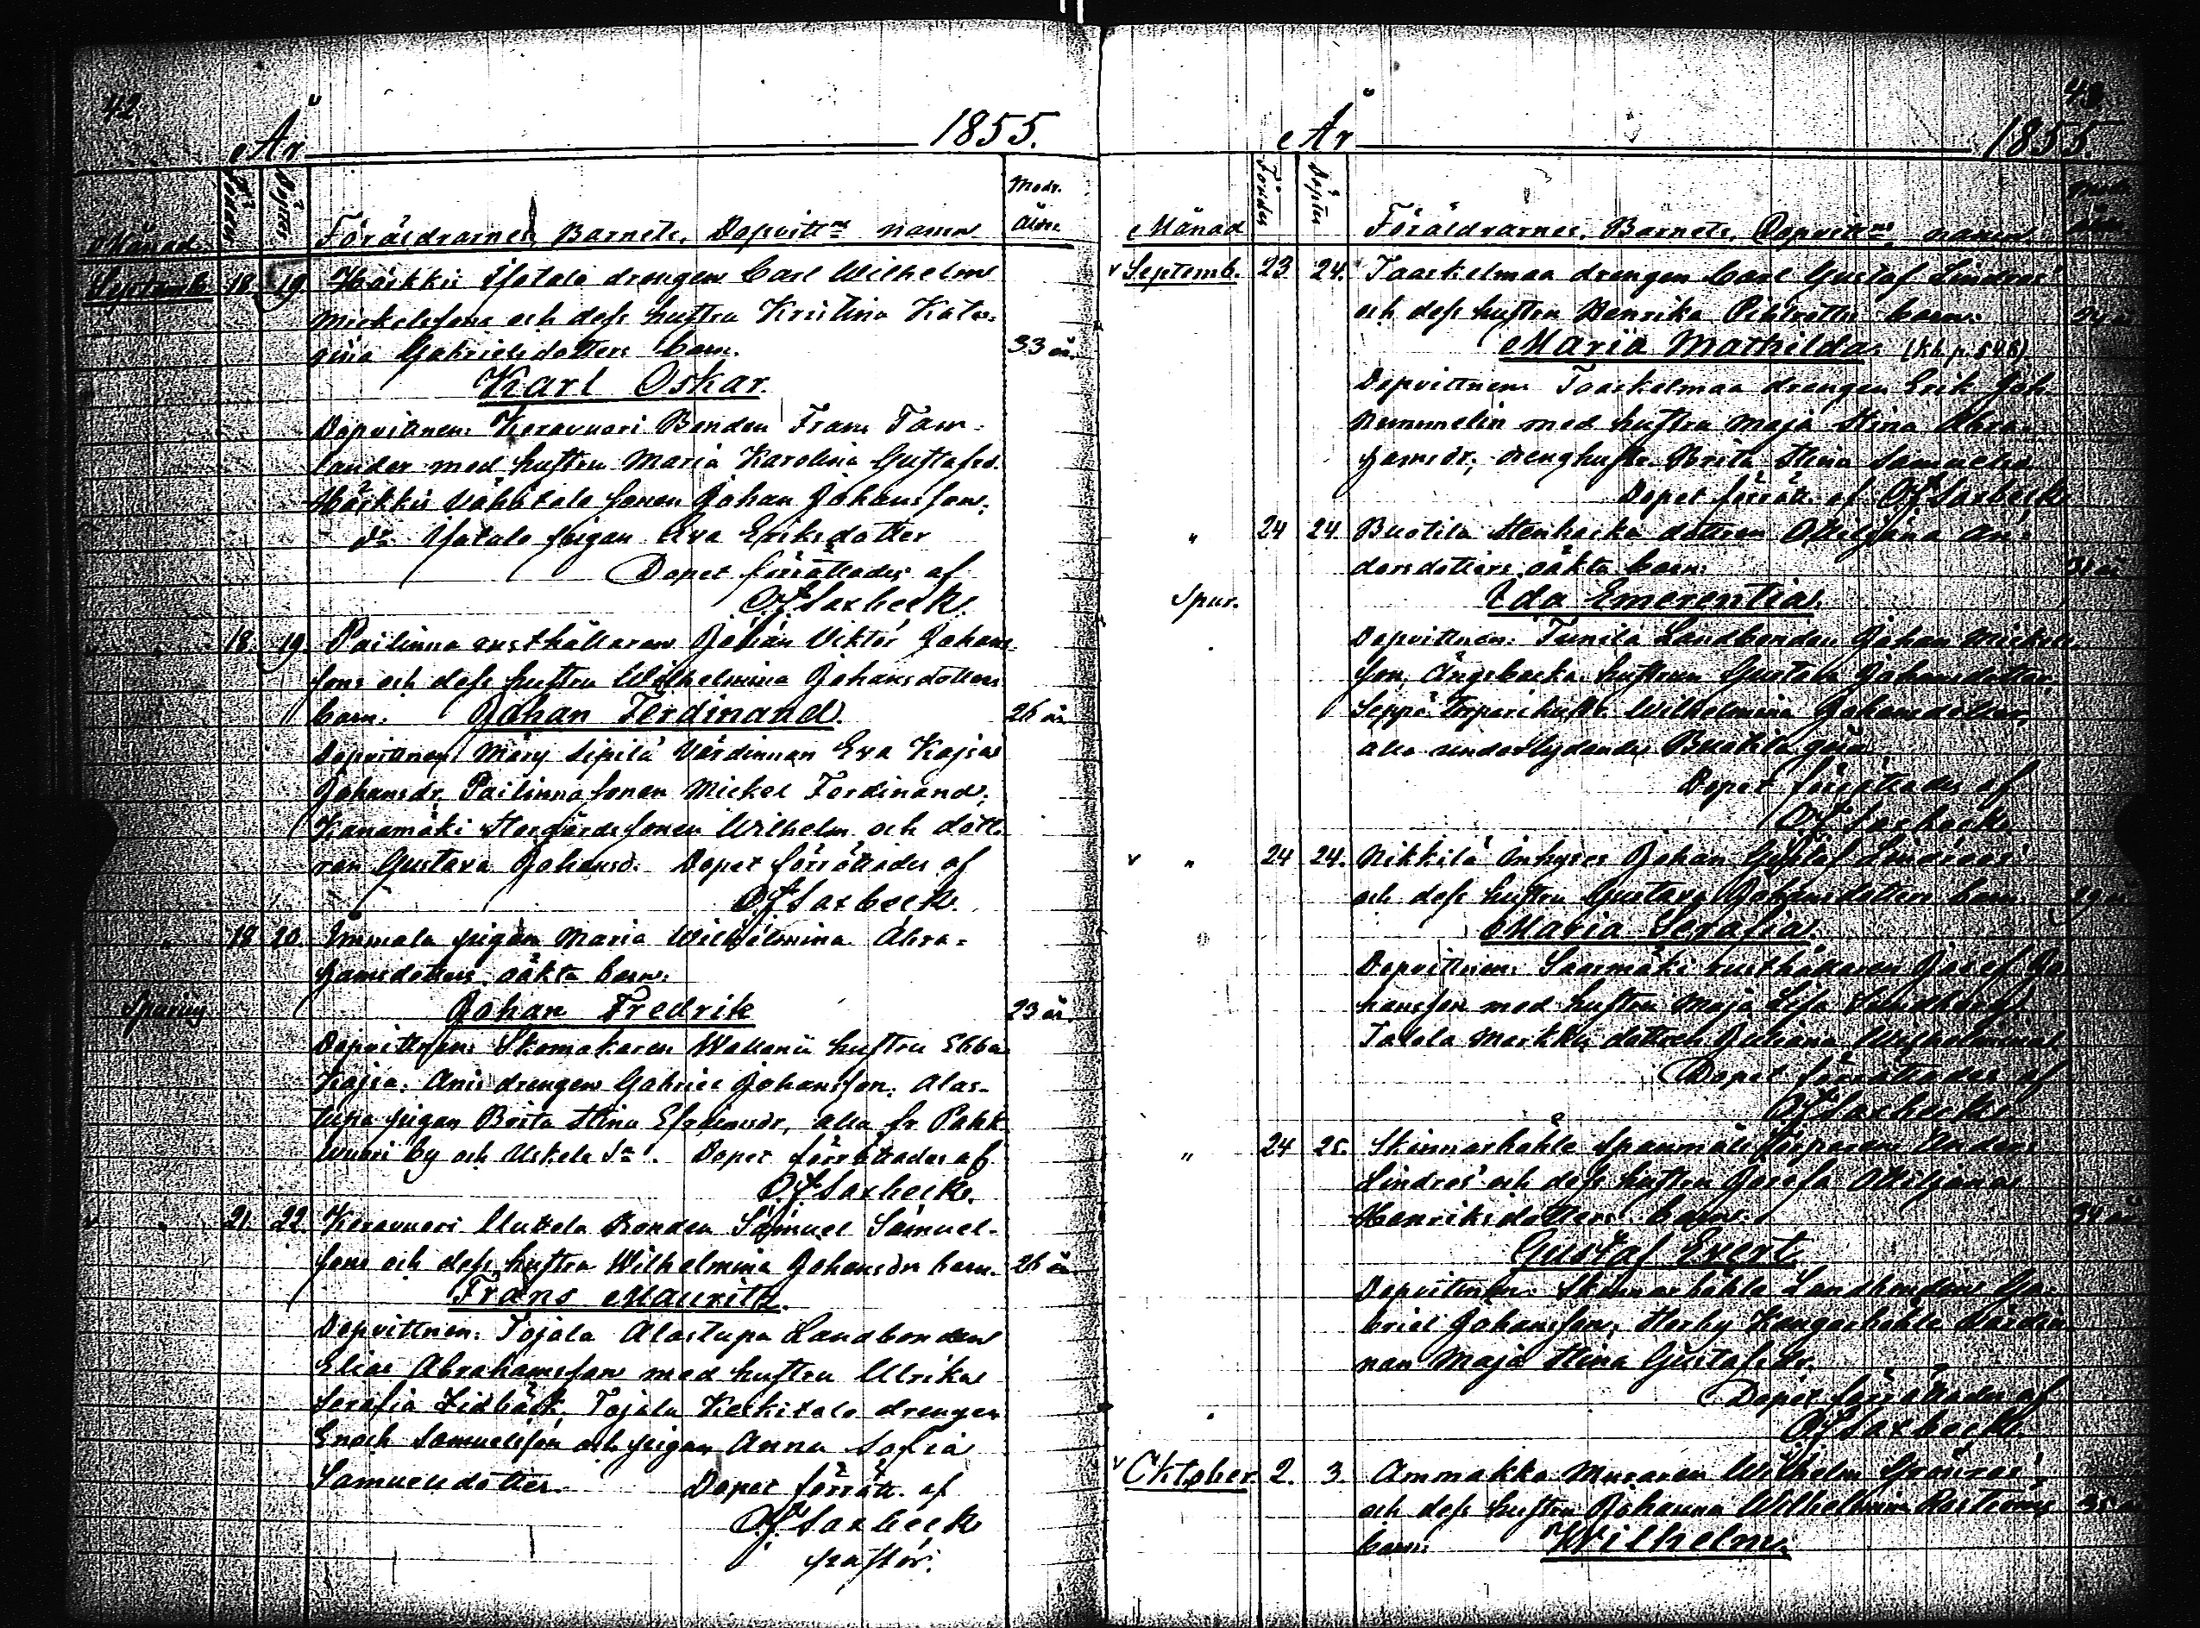 42.
År 1855.
Månad. Födes Döptes Föräldrarnes, Barnets, Dopvittn:s namn Modr. ålder
Septemb. 18 19 Härkki Isotalo drengen Carl Wilhelm
Mickelssons och dess hustru Kristina Kata-
rina Gabrielsdotters barn. 33 år.
Karl Oskar.
Dopvittnen: Keravuori Bonden Frans Tam-
lander med hustru Maria Karolina Gustafsd.
Härkki Vähätalo sonen Johan Johansson,
d:o Isotalo pigan Eva Eriksdotter
Dopet förrättades af
O. F. Saxbeck.
" 18. 19. Pailinna rusthållaren Johan Viktor Johans-
sons och dess hustru Wilhelmina Johansdotters
barn. Johan Ferdinand. 26 år
Dopvittnen: Märy Sipilä Värdinnan Eva Kajsa
Johansdr, Pailinna sonen Mickel Ferdinand,
Kanamäki Storgårds sonen Wilhelm och dott-
ren Gustava Johansd. Dopet förrättades af
O. F. Saxbeck.
" 18 20. Immala pigan Maria Wilhelmina Abra-
hamsdotters oäkta barn.
Spurius Johan Fredrik 23 år.
Dopvittnen: Skomakaren Wallenii hustru Ebba
Kajsa. Anis drengen Gabriel Johansson. Alas-
tupa pigan Brita Stina Efraimsdr, alla fr. Pahk-
vuori by och Uskela S:n. Dopet förrättades af
O. F. Saxbeck.
v " 21. 22. Keravuori Uutela Bonden Samuel Samuel-
sons och dess hustru Wilhelmina Johansdrs barn. 26 år
Frans Mauritz.
Dopvittnen: Tojala Alastupa Landbonden
Elias Abrahamsson med hustru Ulrika
Serafia Lidbäck, Tojala Keskitalo drengen
Enoch Samuelsson och pigan Anna Sofia
Samuelsdotter. Dopet förrätt. af
O. F. Saxbeck
pastor.
43
År 1855.
Månad Födes Döptes Föräldrarnes, Barnets, Dopvittn:s namn
v Septemb. 23. 24. Taarkelmaa drengen Carl Gustaf Lindros'
och dess hustru Henrika barn. 24 år
Maria Mathilda. (Kb. p. 548)
Dopvittnen: Taarkelmaa drengen Erik Joh.
Remmelin med hustru Maja Stina Abra-
hamsdr, drenghustr. Brita Stina Samuelsd.
Dopet förrätt. af O. F. Saxbeck
" 24 24 Buotila Stenbacka dottren Ottiljana An-
dersdotters oäkta barn. år
Spur. Ida Emerentia.
Dopvittnen: Tunila Landbonden Johan Mickels-
son, Ängsbacka hustrun Gustava Johansdotter,
Seppä Torparehustr. Wilhelmina Johansdotter,
alla underlydande Buotila gård.
Dopet förrättades af
O. F. Saxbeck.
v " 24 24. Nikkilä inhyses Johan Gustaf Lindroos'
och dess hustru Gustava Johansdotters barn. 29 år
Maria Serafia.
Dopvittnen: Saarmäki rusthållaren Josef Jo-
hansson med hustru Maja Lisa Lundberg,
Talola Markku dottren Juliana Wilhelmina
Dopet förrättades af
O. F. Saxbeck.
" 24 25. Skinnarböhle Torparen Anders
Lindros' och dess hustru Josefa Ottiljana
Henriksdotters barn. 34 år
Gustaf Evert.
Dopvittnen: Skinnarböhle Landbonden Ga-
briel Johansson, Storby Kangasböhle Värdin-
nan Maja Stina Gustafsdr.
Dopet förrättades af
O. F. Saxbeck.
v Oktober. 2. 3. Ammakko Muraren Wilhelm Grönros'
och dess hustru Johanna Wilhelmina
barn. Wilhelm.